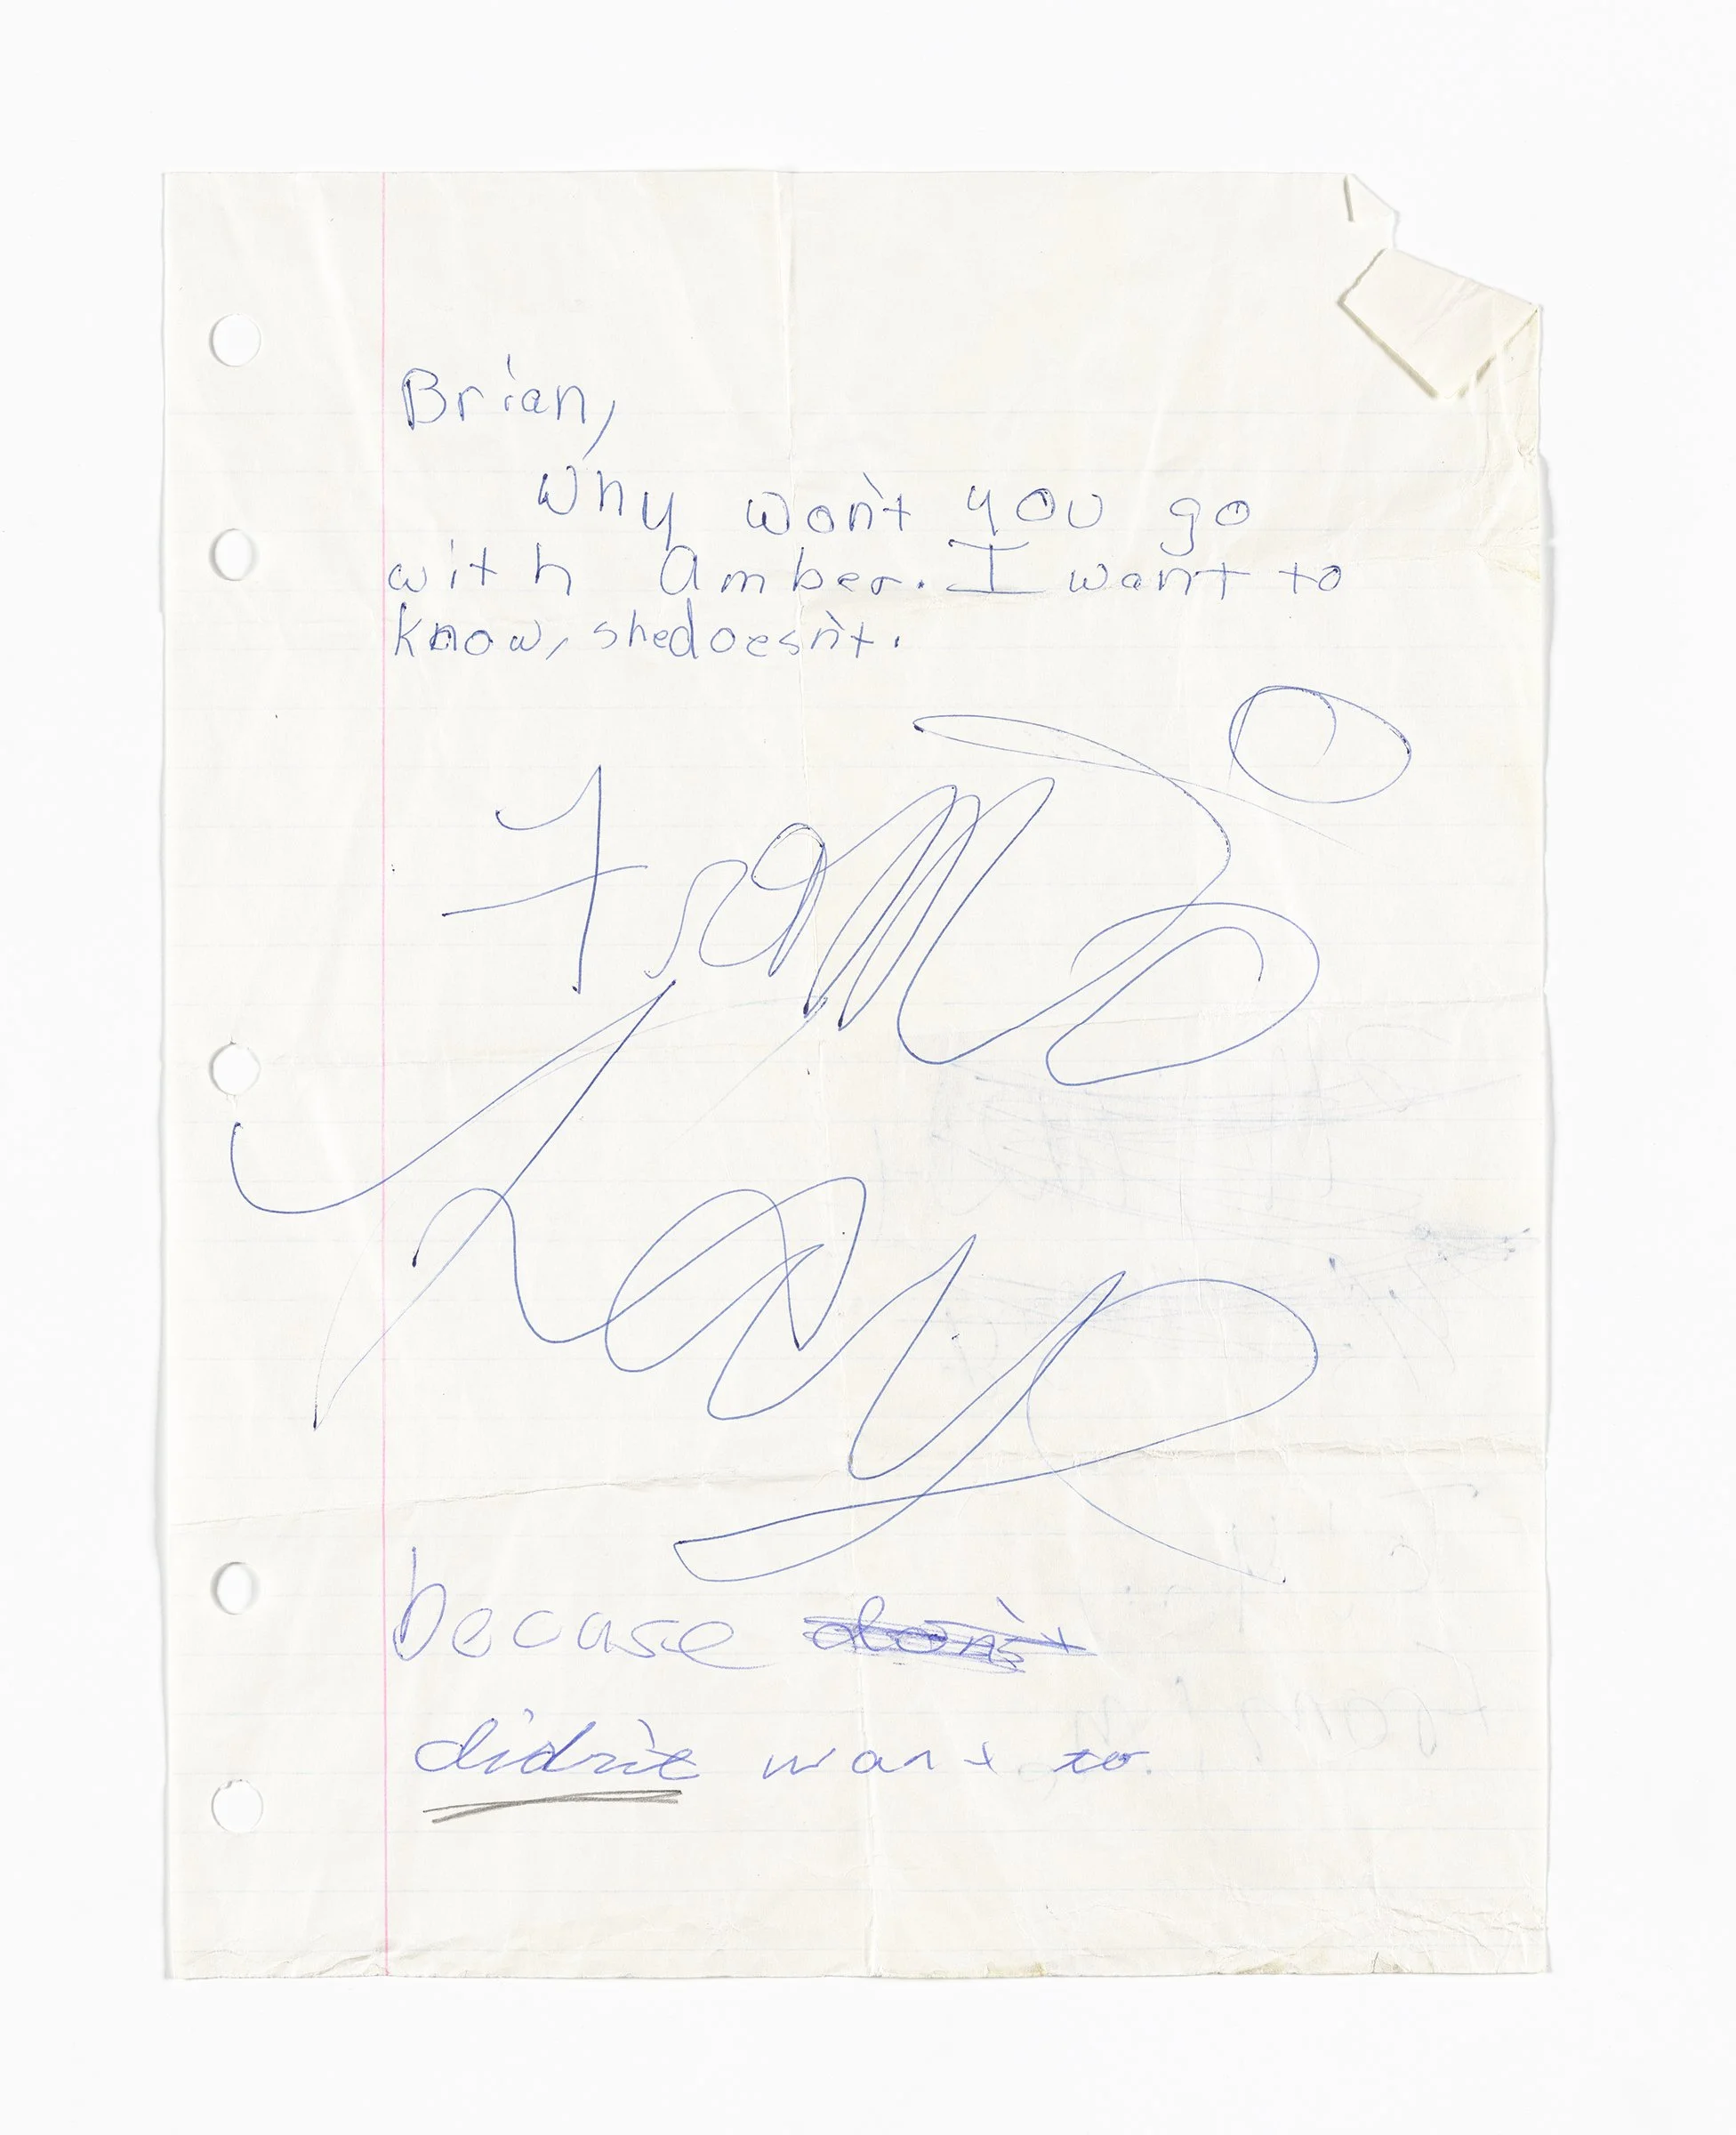 Brian,
Why won't you go
with Amber. I want to
know, shedoesn't.
From
Love
becuase don't
didn't want to.